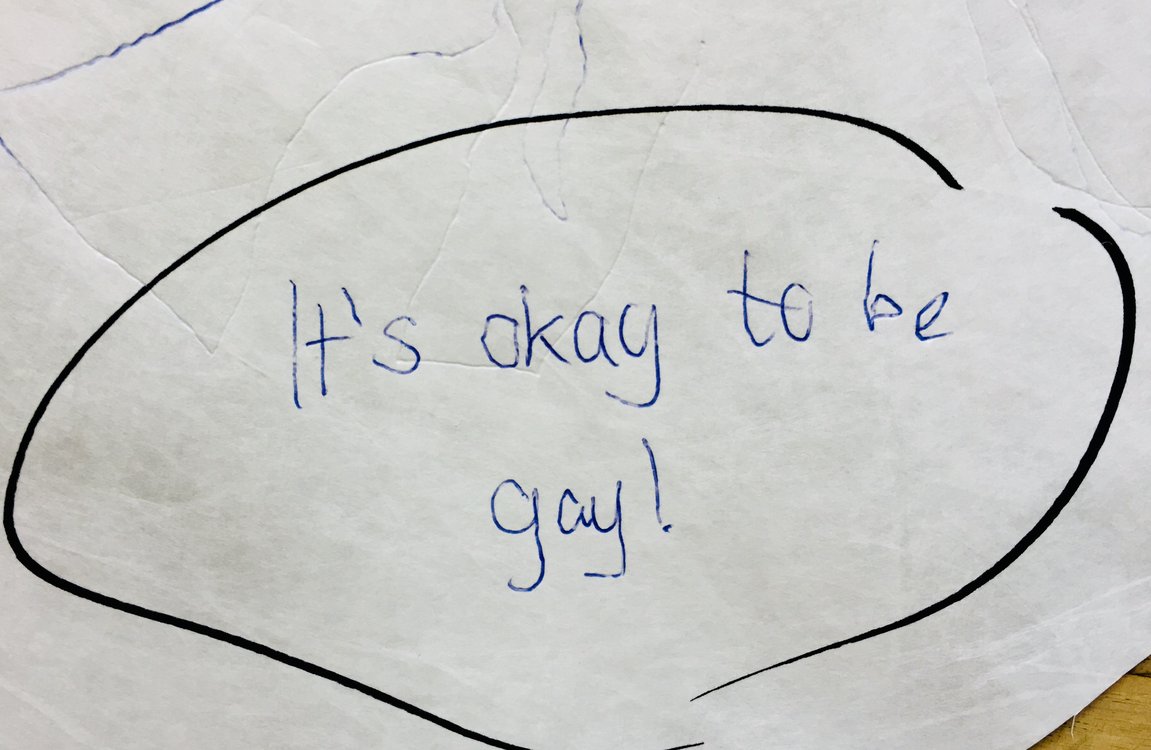 It's okay to be
gay!